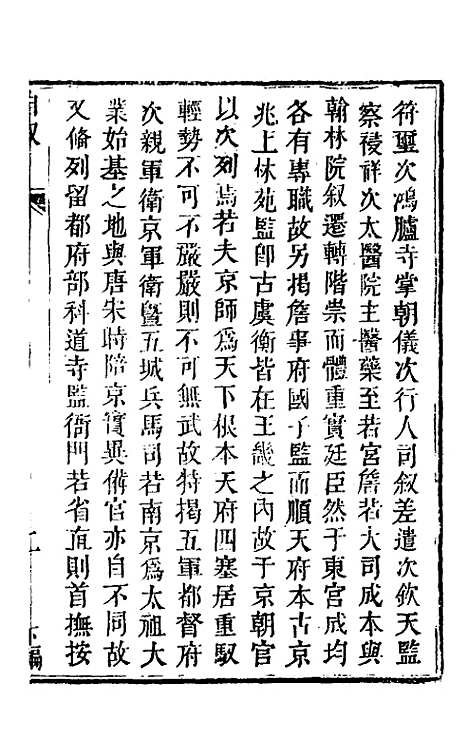 符璽次鴻臚寺掌朝儀次行人司叙差遣次欽天監
察祲祥次太醫院主醫藥至若宮詹若大司成本與
翰林院叙遷轉階崇而體重實廷臣然于東宮成均
各有專職故另掲詹事府國子監而順天府本古京
兆上林苑監卽古虞衡皆在王畿之內故于京朝官
以次列焉若夫京師爲天下根本天府四塞居重馭
輕勢不可不嚴嚴則不可無武故特掲五軍都督府
次親軍衛京軍衛曁五城兵馬司若南京爲太祖大
業始基之地與唐宋時陪京實異備官亦自不同故
又條列留都府部科道寺監衙門若省直則首撫按